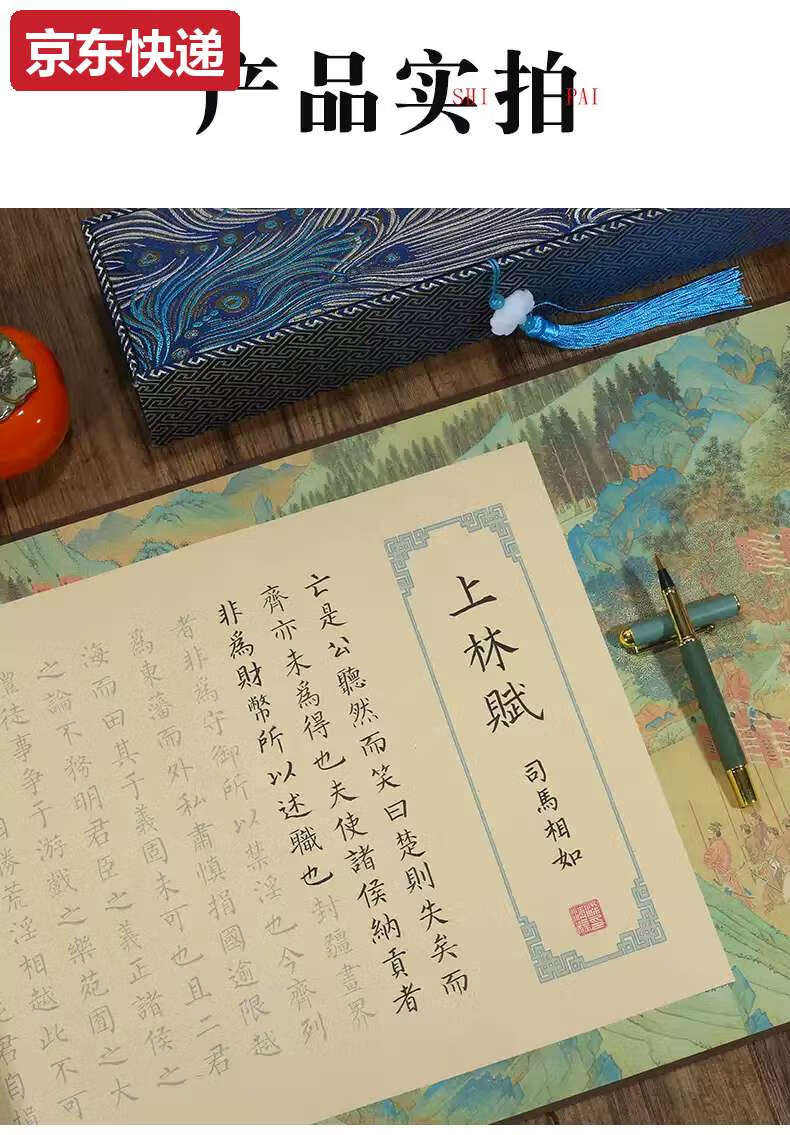 京东快递
产品实拍
SHI PAI
上林賦
司馬相如
亡是公聽然而笑曰楚則失矣而
齊亦未爲得也夫使諸侯納貢者
非爲財幣所以述職也封疆畫界
者非爲守御所以禁淫也今齊列
爲東藩而外私肅慎捐國逾限越
海而田其于義固未可也且二君
之論不務明君臣之義正諸侯之
徒事争于游戲之樂苑囿之大
勝荒淫相越此不可
君自損